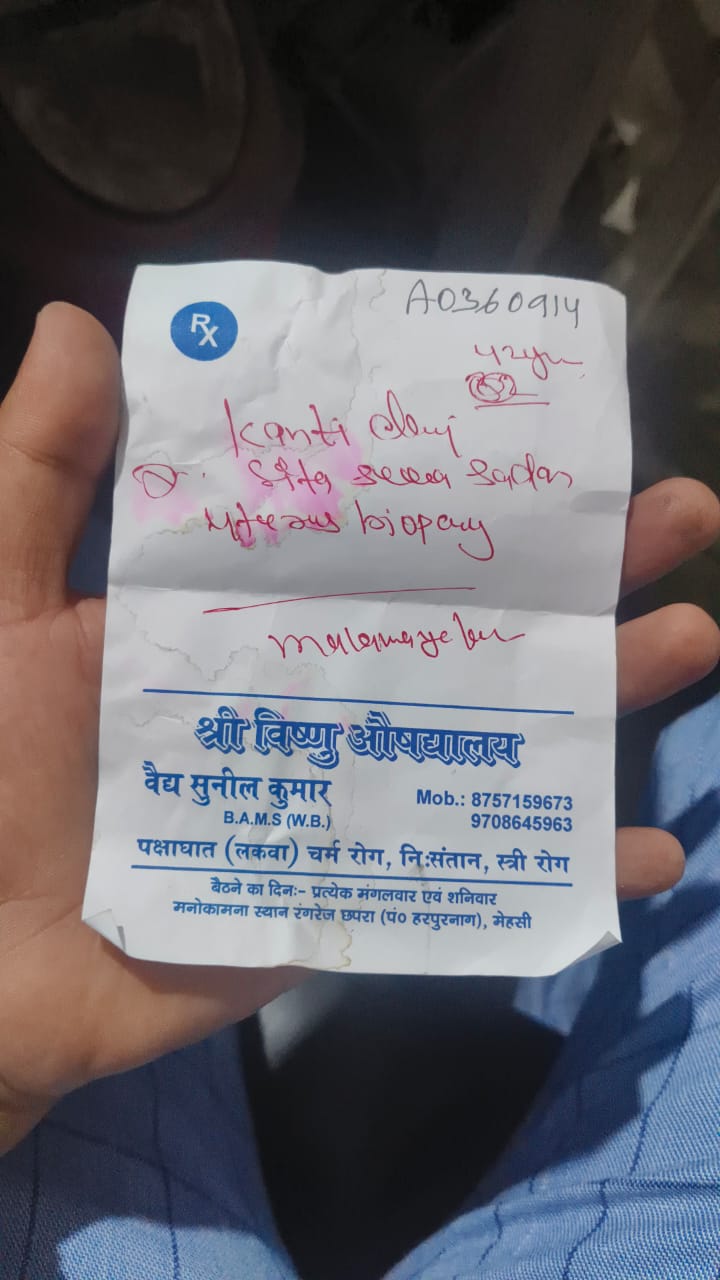 Rx
A0360914
Kanti devi
Dr. Sita seva sadan
uterus biopsy
श्री विष्णु औषद्यालय
वैद्य सुनील कुमार
B.A.M.S (W.B.)
Mob.: 8757159673
9708645963
पक्षाघात (लकवा) चर्म रोग, नि:संतान, स्त्री रोग
बैठने का दिन:- प्रत्येक मंगलवार एवं शनिवार
मनोकामना स्थान रंगरेज छपरा (पं० हरपुरनाग), मेहसी